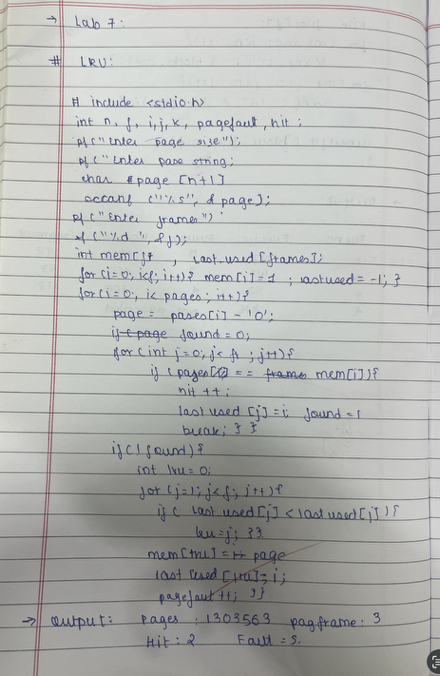 → Lab 7:
# LRU:
# include <stdio.h>
int n, f, i, j, k, pagefault, hit ;
pf ("enter page size");
pf ("enter page string;
char page [n+1]
scanf ("%s", & page);
pf ("Enter frames")
sf ("%d", &f);
int mem[f] , last_used [frames];
for (i=0; i<f; i++) { mem[i]=-1 ; lastused = -1; }
for (i=0; i< pages; i++) {
page = pages[i] - '0';
found = 0;
for (int j=0; j< f ; j++) {
if (pages[i] == mem[i]) {
hit ++;
last used [j] = i; found = 1
break; } }
if (! found) {
int lru = 0;
for (j=1; j<f; j++) {
if ( last used [j] < last used [j] ) {
lru = j; }}
mem [lru] = page
last used [lru] = i;
pagefault ++; }}
→ Output: Pages : 1303563 pagframe : 3
Hit : 2 Fault = 5.